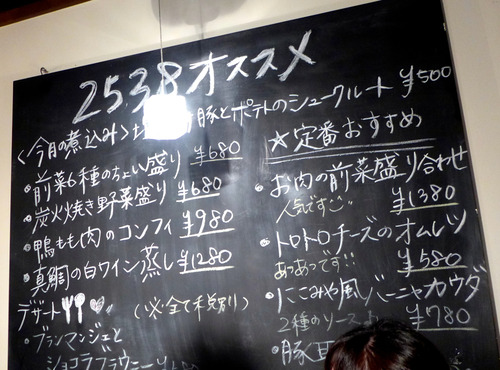 2538オススメ
<今月の煮込み> 豚とポテトのシュークルート ¥500
・前菜6種のちょい盛り ¥680
・炭火焼き野菜盛り ¥680
・鴨もも肉のコンフィ ¥980
・真鯛の白ワイン蒸し ¥1280
デザート
(※全て税別)
・ブランマンジェと
ショコラブラウニー
★定番おすすめ
・お肉の前菜盛り合わせ
人気です ¥1380
・トロトロチーズのオムレツ
あつあつです!! ¥580
・にこみや風バーニャカウダ
2種のソース ¥780
・豚